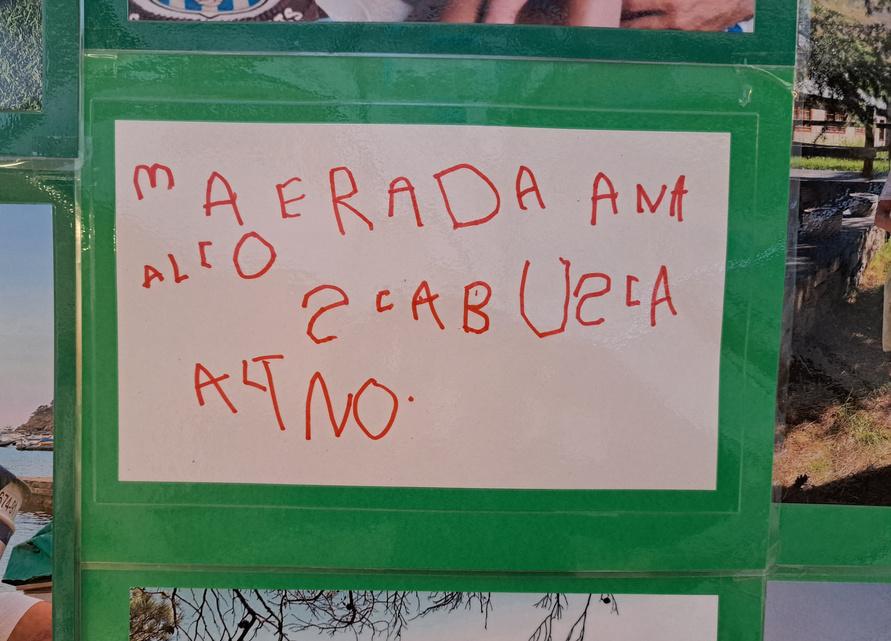 MAERADA ANA
ALCO
SCABUSCA
ALTNO.
674-